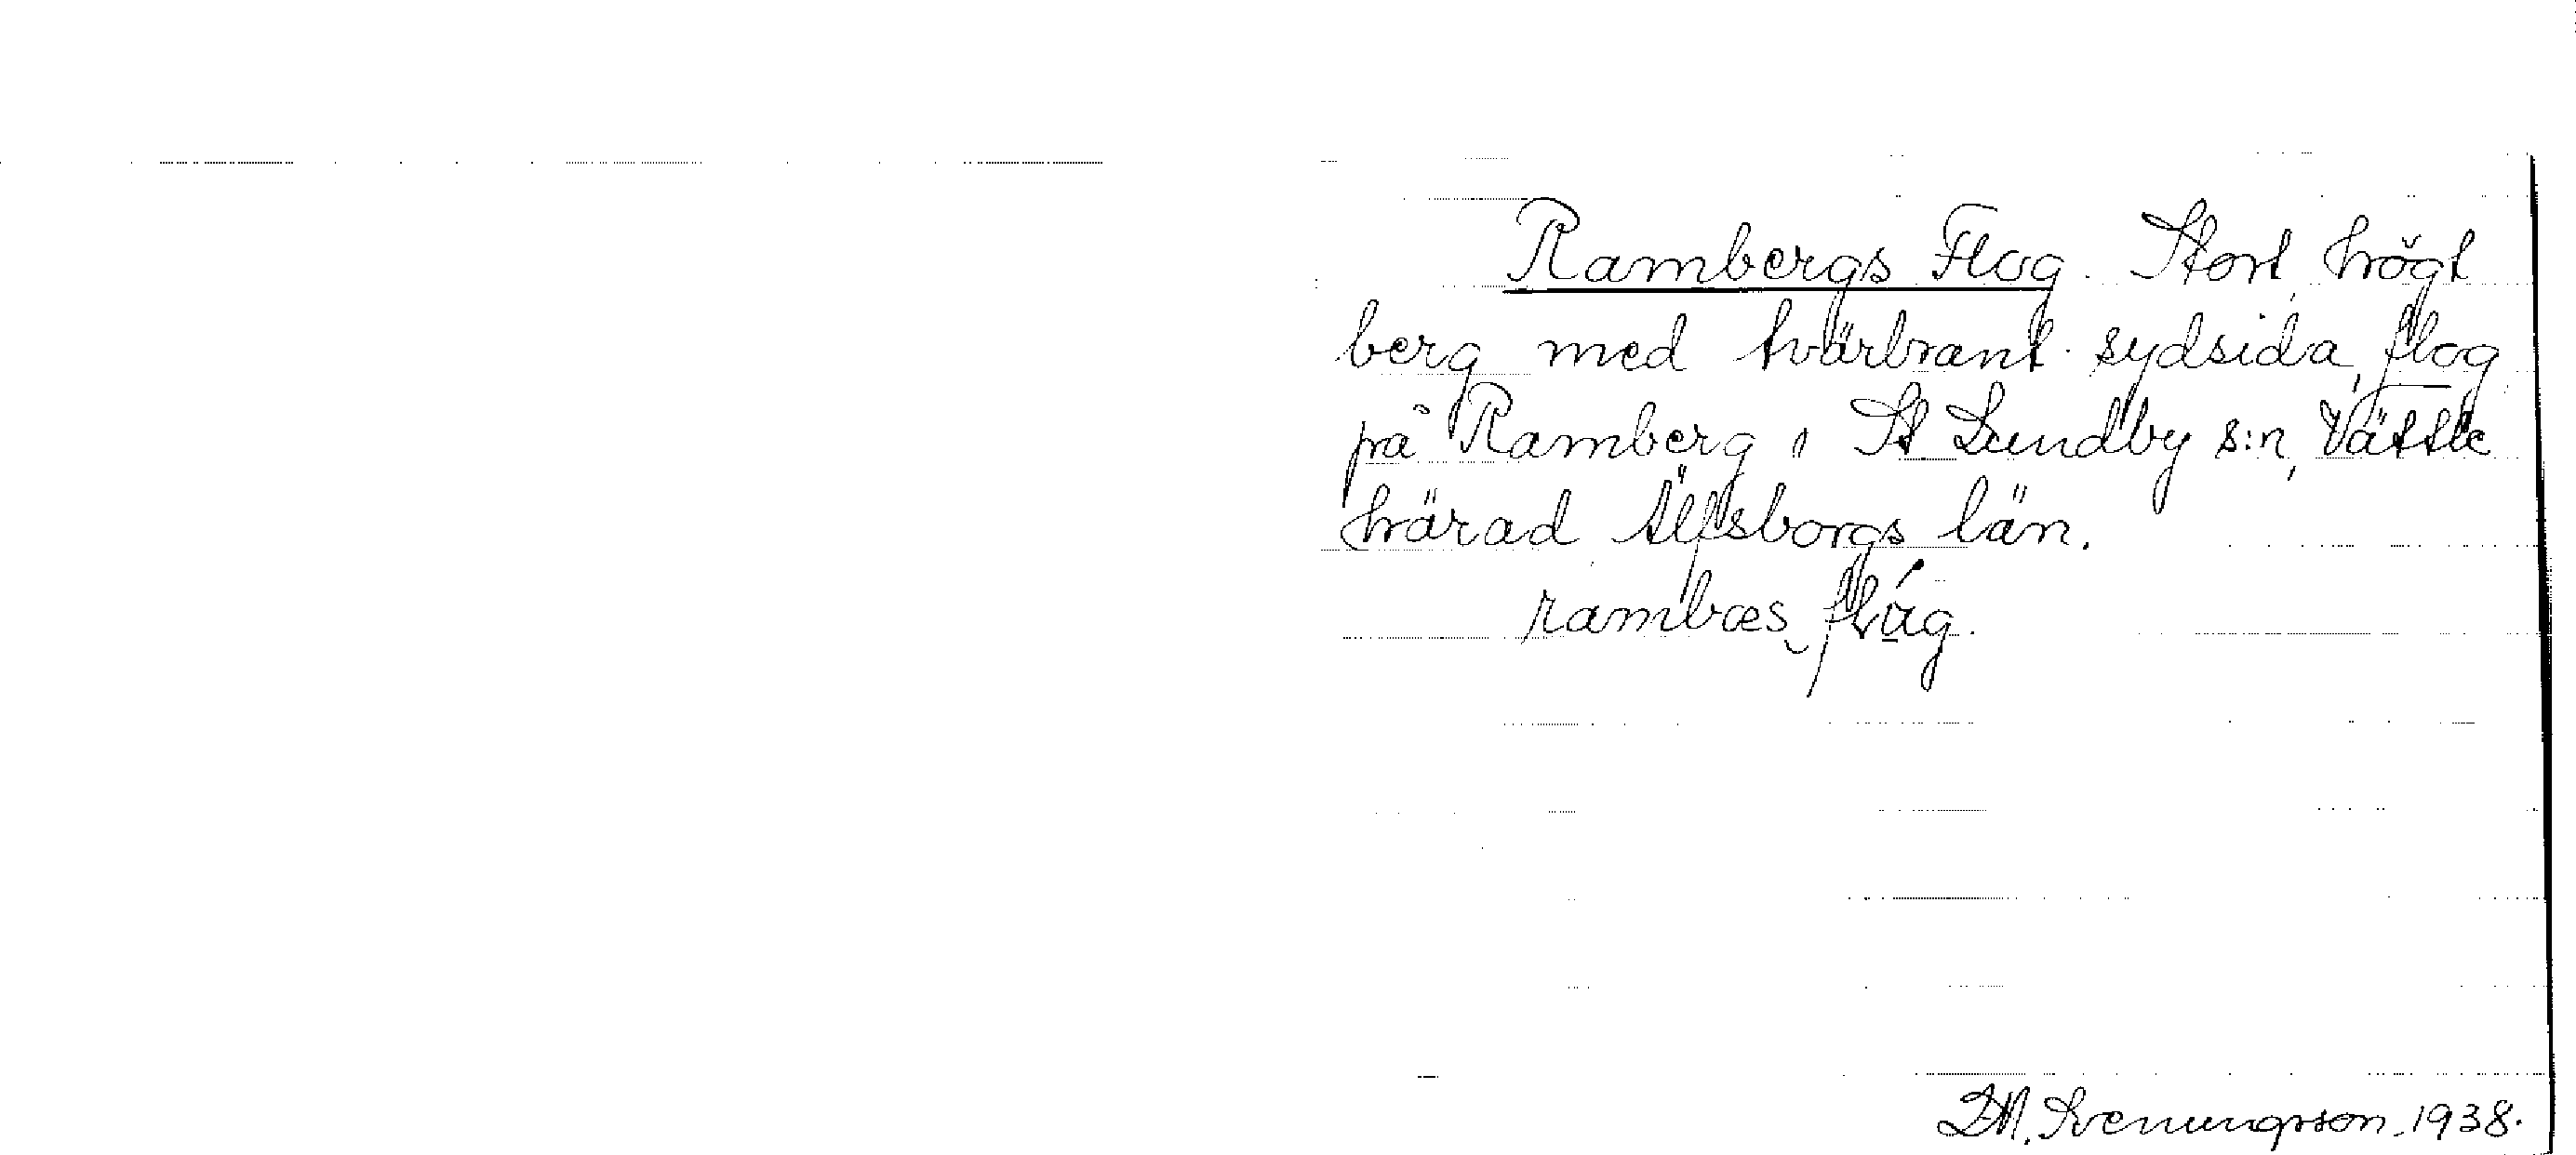 Rambergs Flog. Stort högt
berg med tvärbrant sydsida, flog
på Ramberg i St Lundby s:n, Vättle
härad Älfsborgs län.
rambæs flåg.
Svenungsson. 1938.